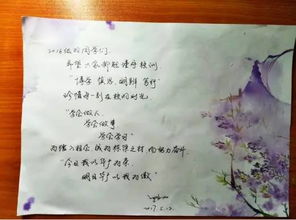 2016级的同学们:
希望大家都能谨母校训
"博学 慎思 明辨 笃行"
珍惜每一刻在校的时光
"学会做人
学会做事
学会学习"
为踏入社会,成为栋梁之材,而努力奋斗
"今日我以华广为荣
明日华广以我为傲"
2017.5.12